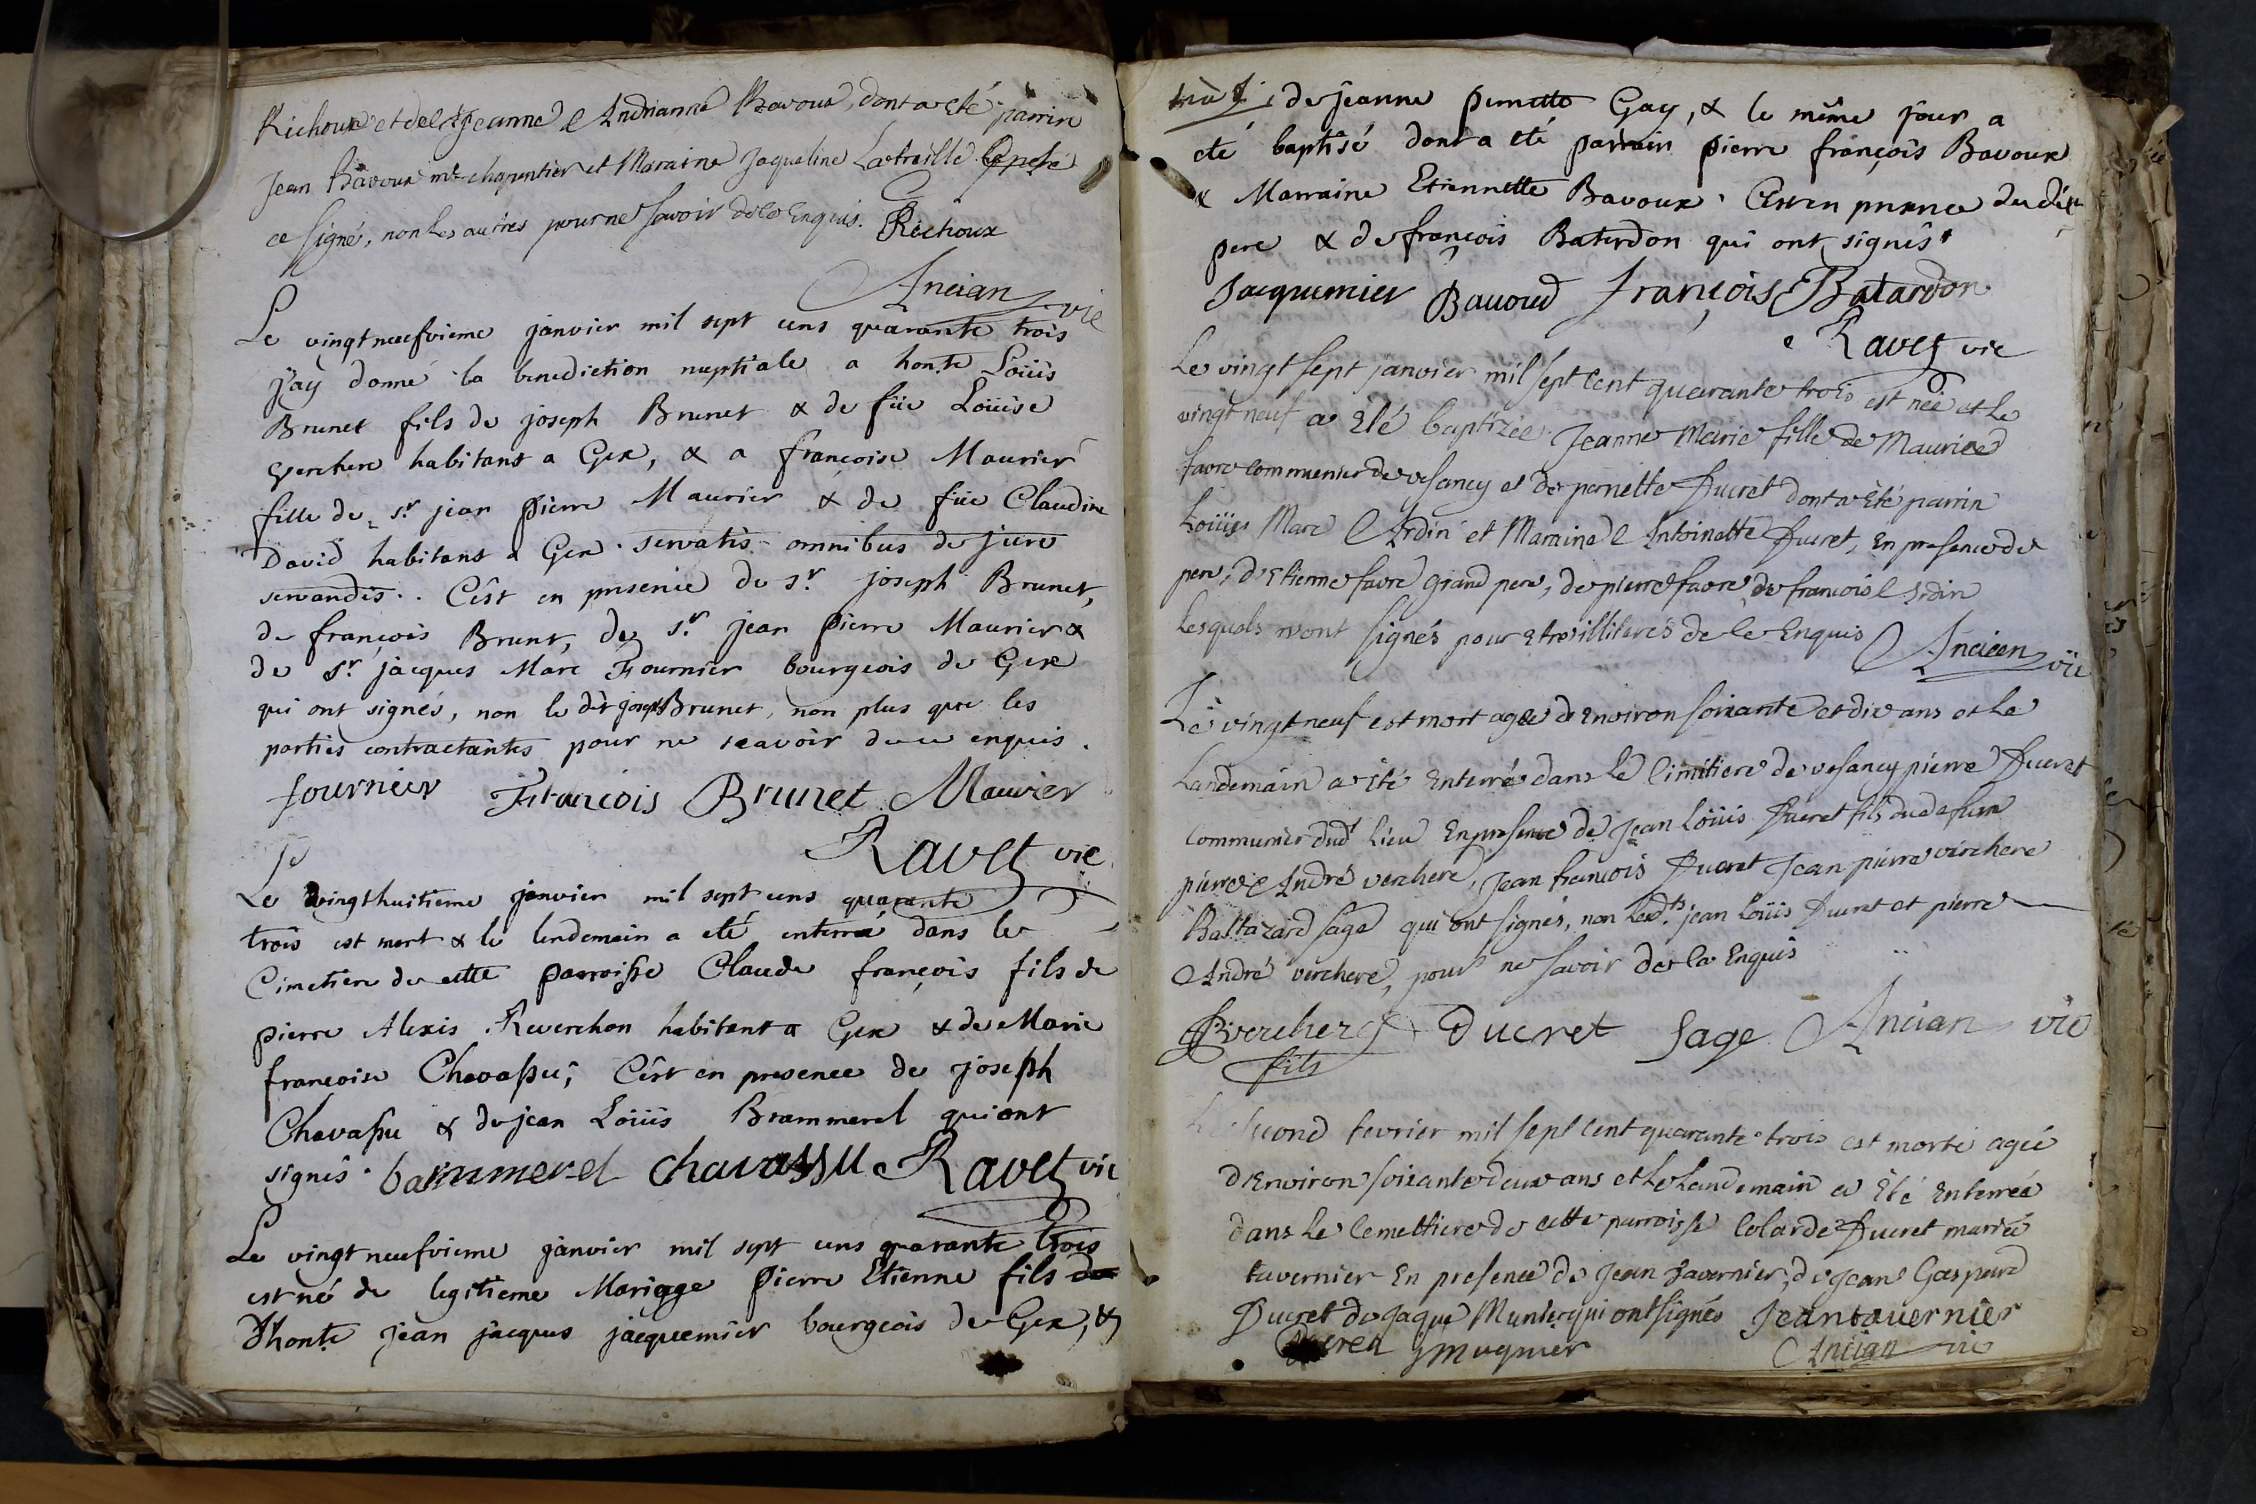 Richoux et de Jeanne Andrianne Bavoux, dont a eté parrin
Jean Bavoux mtr chapentier et Maraine Jaqueline Latraille Le pere
a signé, non les autres pour ne savoir de ce Enquis. Richoux
Ancian vic
Le vingt neufvieme janvier mil sept cens quarante trois
j'ay donné la benediction nuptiale a hon.te Loüis
Brunet fils de joseph Brunet & de füe Loüise
verchere habitant a Gex, & a françoise Maurier
fille de sr. jean pierre Maurier & de füe Claudine
David habitant a Gex. servatis omnibus de jure
servandis. C'est en presence de sr. joseph Brunet,
de françois Brunet, de sr. jean pierre Maurier &
de sr. jacques Marc Fournier bourgeois de Gex
qui ont signés, non le dit joseph Brunet, non plus que les
parties contractantes pour ne scavoir de ce enquis.
fournier François Brunet Maurier
Ravet vic
Le vingt huitieme janvier mil sept cens quarante
trois est mort & le lendemain a eté enterré dans le
Cimetiere de cette parroisse Claude françois fils de
pierre Alexis Reverchon habitant a Gex & de Marie
francoise Chavassu; C'est en presence de joseph
Chavassu & de jean Loüis Brammerel qui ont
signés. barmmerel chavassu Ravet vic
Le vingt neufvieme janvier mil sept cens quarante trois
est né de legitieme Mariage pierre Etienne fils de
d'hon.te jean jacques jacquemier bourgeois de Gex, &
de jeanne pernette Gay, & le même jour a
eté baptisé dont a eté parrain pierre françois Bavoux
& Marraine Etiennette Bavoux. C'est en presence du dit
pere & de françois Batardon qui ont signés
Jacquemier Bavoud françois Batardon
Ravet vic
Le vingt sept janvier mil sept Cent quarante trois est neé et le
vingt neuf a Eté baptizée Jeanne Marie fille de Maurice
favre communier de vesancy et de pernette Ducret dont a Eté parrin
Loüis Marc Ardin et Maraine Antoinette Ducret, En presence du
pere, d'Etienne favre grand pere, de pierre favre, de francois Ardin
Lesquels n'ont signés pour Etre illiterés de ce Enquis Ancian vic
Le vingt neuf est mort ageé d'Environ soixante et dix ans et Le
Landemain a Eté Enterré dans le Cimitiere de vesancy pierre Ducret
communier dud. Lieu En presence de Jean Loüis Ducret fils du defunt
pierre André verchere, Jean francois Ducret Jean pierre verchere
Baltazard sage qui ont signés, non Lesdts. jean Loüis Ducret et pierre
André verchere, pour ne savoir de ce Enquis
verchere Ducret sage Ancian vic
fils
Le second fevrier mil sept Cent quarante trois est morte ageé
d'Environ soixante deux ans et Le Landemain a Eté Enterrée
dans Le Cemettiere de cette parroisse Colarde Ducret marieé
tavernier En presence de Jean tavernier, de Jean Gaspard
Ducret de Jaque Munier qui ont signés Jean tavernier
mugnier Ancian vic